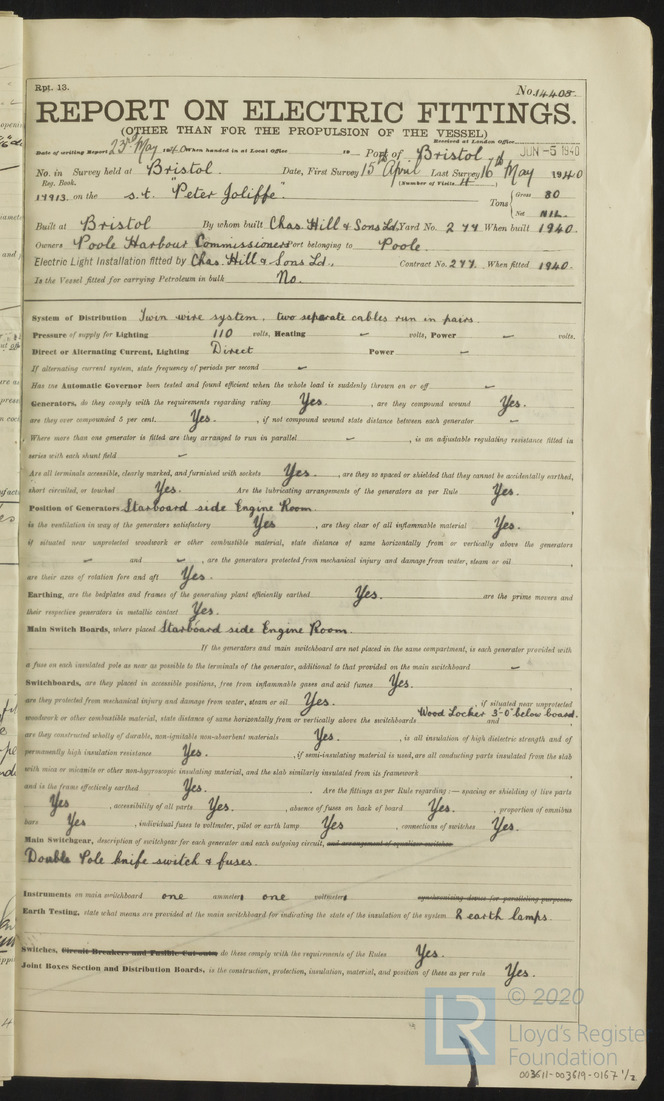 Rpt. 13.
No. 14405.
REPORT ON ELECTRIC FITTINGS.
(OTHER THAN FOR THE PROPULSION OF THE VESSEL)
Received at London Office JUN -5 1940
Date of writing Report 23rd May 1940 When handed in at Local Office 19 Port of Bristol
No. in Survey held at Bristol. Date, First Survey 15th April Last Survey 16th May 1940
Reg. Book. (Number of Visits 4)
19913. on the s.t. "Peter Joliffe" Tons { Gross 80
Net NIL.
Built at Bristol By whom built Chas. Hill & Sons Ld. Yard No. 277 When built 1940.
Owners Poole Harbour Commissioners Port belonging to Poole.
Electric Light Installation fitted by Chas. Hill & Sons Ld., Contract No. 277. When fitted 1940.
Is the Vessel fitted for carrying Petroleum in bulk No.
System of Distribution Twin wire system, two separate cables run in pairs.
Pressure of supply for Lighting 110 volts, Heating - volts, Power - volts.
Direct or Alternating Current, Lighting Direct Power -
If alternating current system, state frequency of periods per second -
Has the Automatic Governor been tested and found efficient when the whole load is suddenly thrown on or off -
Generators, do they comply with the requirements regarding rating Yes. , are they compound wound Yes.
are they over compounded 5 per cent. Yes. , if not compound wound state distance between each generator -
Where more than one generator is fitted are they arranged to run in parallel - , is an adjustable regulating resistance fitted in
series with each shunt field -
Are all terminals accessible, clearly marked, and furnished with sockets Yes. , are they so spaced or shielded that they cannot be accidentally earthed,
short circuited, or touched Yes. Are the lubricating arrangements of the generators as per Rule Yes.
Position of Generators Starboard side Engine Room.
is the ventilation in way of the generators satisfactory Yes , are they clear of all inflammable material Yes.
if situated near unprotected woodwork or other combustible material, state distance of same horizontally from or vertically above the generators
- and - , are the generators protected from mechanical injury and damage from water, steam or oil
are their axes of rotation fore and aft Yes.
Earthing, are the bedplates and frames of the generating plant efficiently earthed Yes. are the prime movers and
their respective generators in metallic contact Yes.
Main Switch Boards, where placed Starboard side Engine Room.
If the generators and main switchboard are not placed in the same compartment, is each generator provided with
a fuse on each insulated pole as near as possible to the terminals of the generator, additional to that provided on the main switchboard -
Switchboards, are they placed in accessible positions, free from inflammable gases and acid fumes Yes.
are they protected from mechanical injury and damage from water, steam or oil Yes. , if situated near unprotected
woodwork or other combustible material, state distance of same horizontally from or vertically above the switchboards Wood Locker 3'-0" below board. and
are they constructed wholly of durable, non-ignitable non-absorbent materials Yes. , is all insulation of high dielectric strength and of
permanently high insulation resistance Yes. , if semi-insulating material is used, are all conducting parts insulated from the slab
with mica or micanite or other non-hygroscopic insulating material, and the slab similarly insulated from its framework
and is the frame effectively earthed Yes. . Are the fittings as per Rule regarding:— spacing or shielding of live parts
Yes , accessibility of all parts Yes. , absence of fuses on back of board Yes. , proportion of omnibus
bars Yes , individual fuses to voltmeter, pilot or earth lamp Yes , connections of switches Yes.
Main Switchgear, description of switchgear for each generator and each outgoing circuit, and arrangement of equalizer switches
Double Pole knife switch & fuses.
Instruments on main switchboard one ammeters one voltmeters synchronising device for paralleling purposes.
Earth Testing, state what means are provided at the main switchboard for indicating the state of the insulation of the system 2 earth lamps.
Switches, Circuit Breakers and Fusible Cut-outs, do these comply with the requirements of the Rules Yes.
Joint Boxes Section and Distribution Boards, is the construction, protection, insulation, material, and position of these as per rule Yes.
LR
© 2020
Lloyd's Register
Foundation
003611-003619-0167 1/2